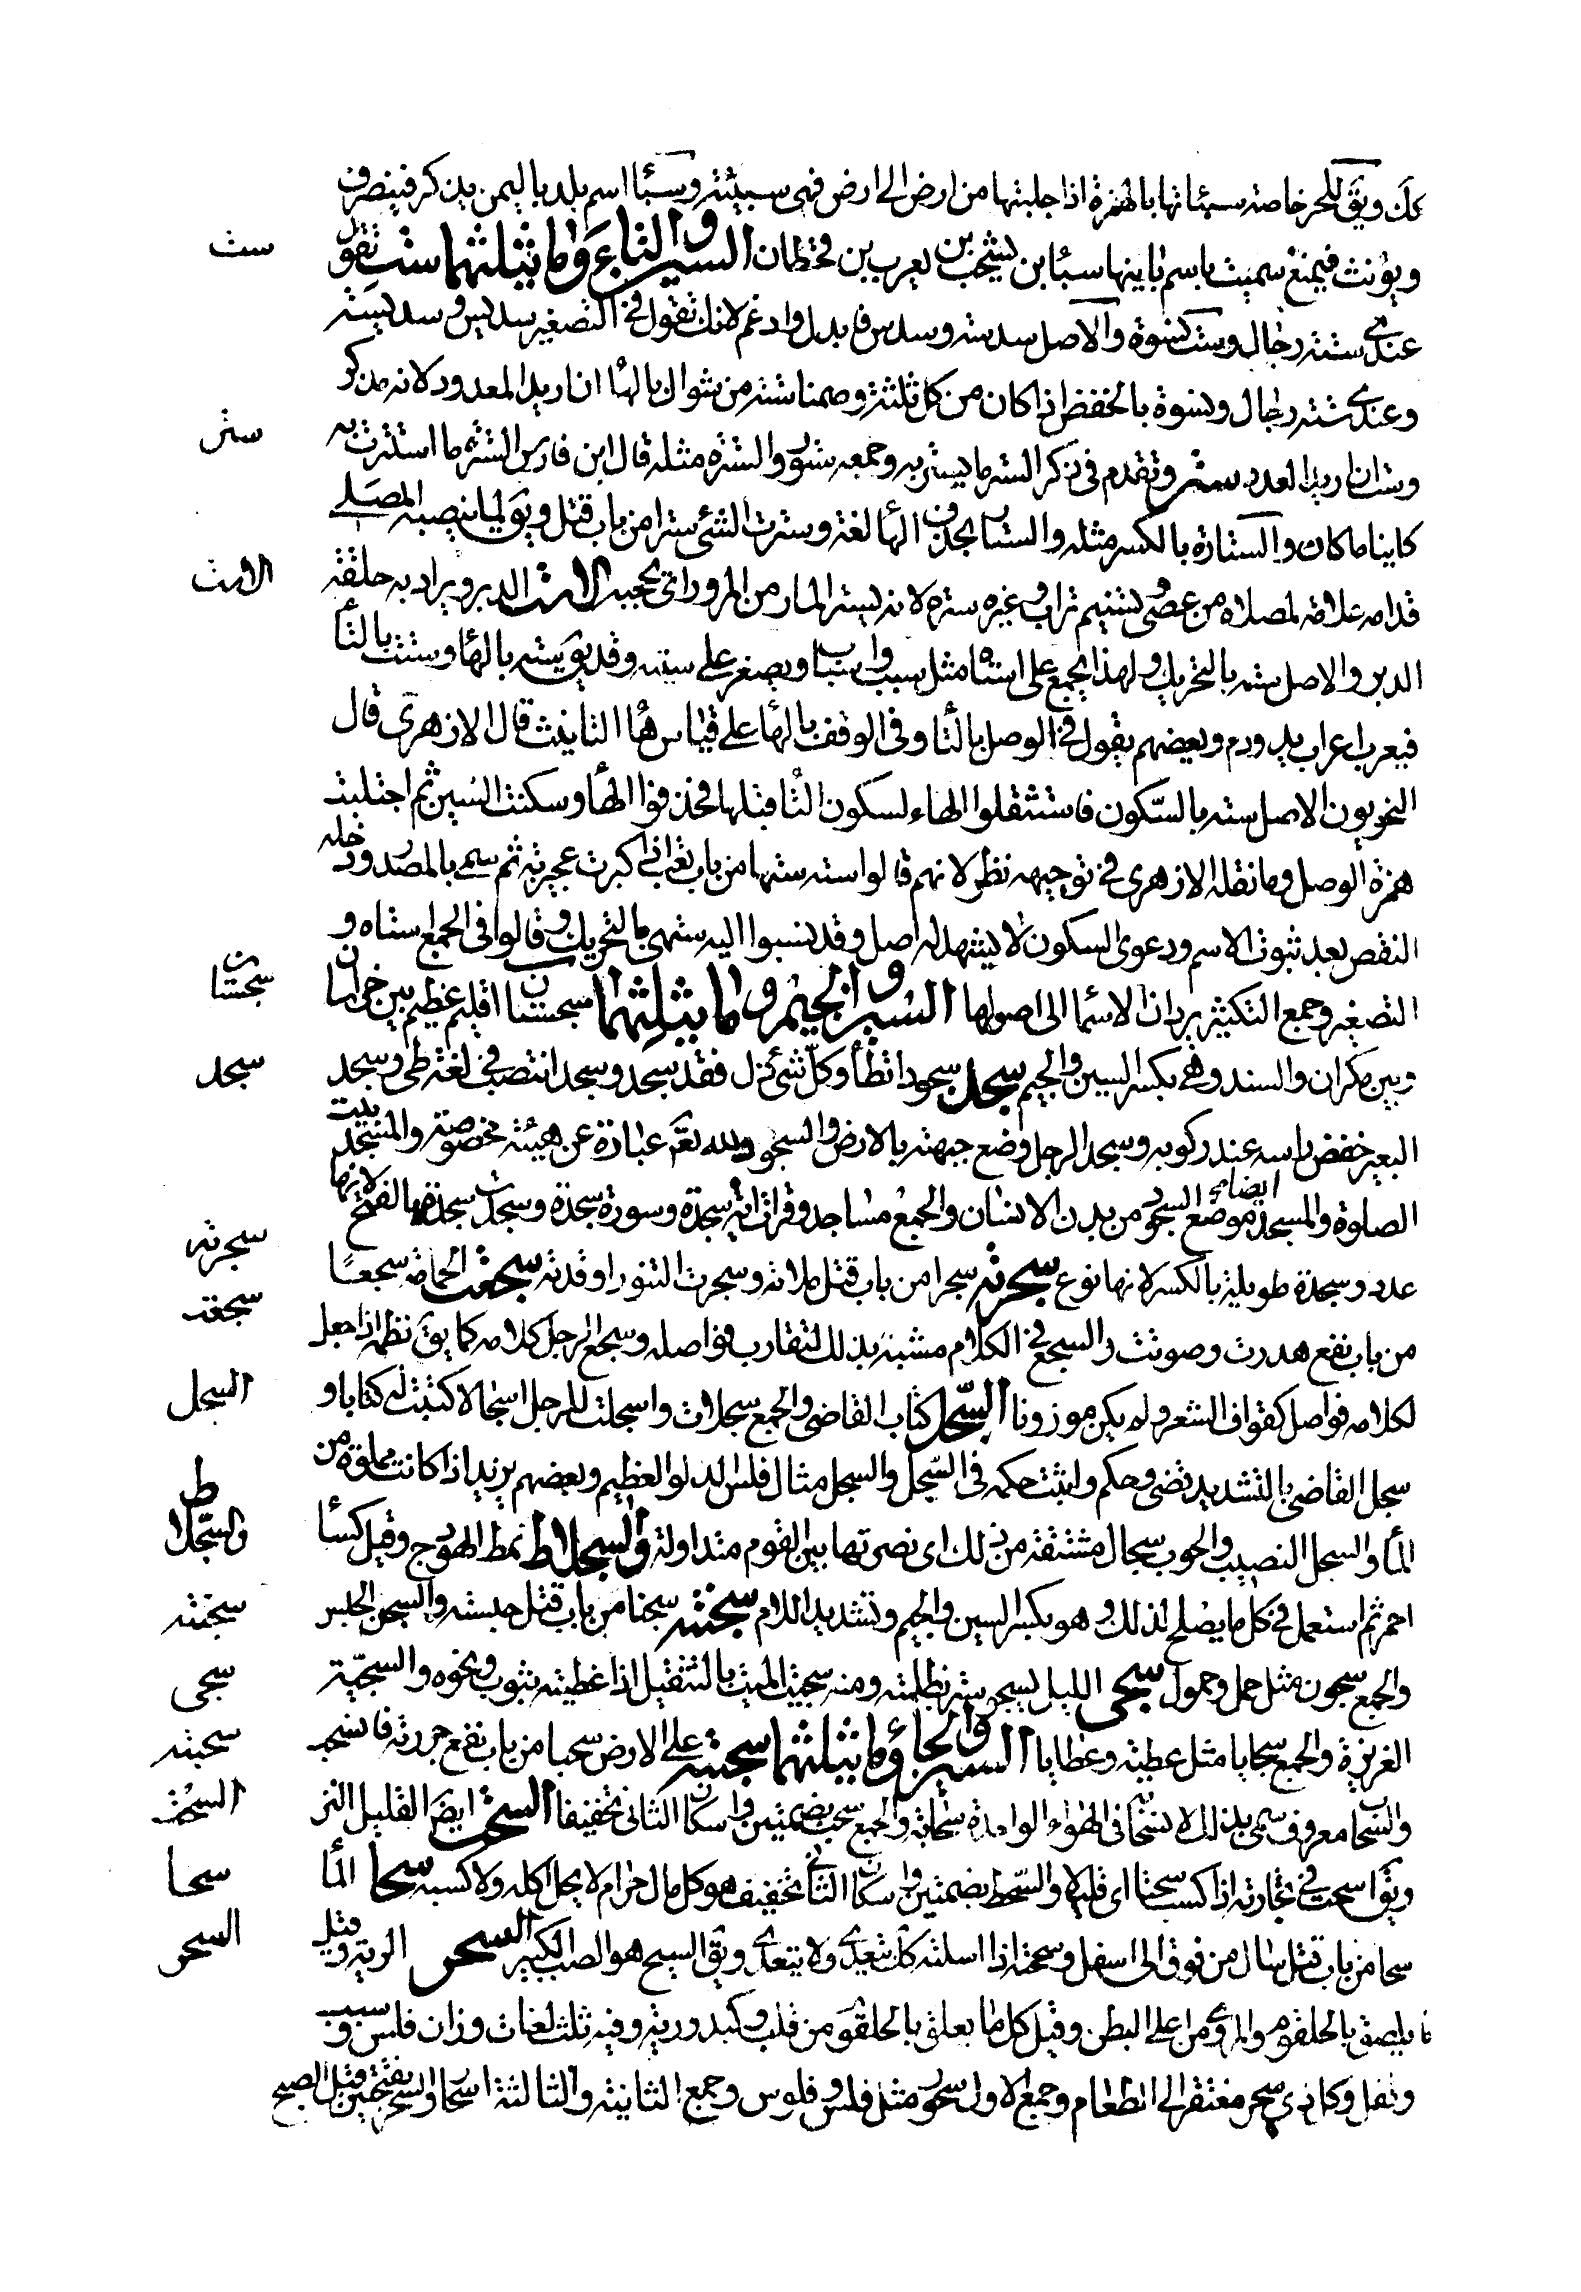 كك ويق للخمر خاصة سبئاتها بالهمزة اذا جلبتها من ارض الى ارض فهى سبيئة وسبأ اسم بلد باليمن يذكر فينصرف
ويؤنث فيمنع سميت باسم بانيها سبأ بن يشجب بن يعرب بن قحطان السين والتاء وما يثلثهما ست تقول
ست
عندى ستة رجال وست نسوة والاصل سدسة وسدس فابدل وادغم لانك تقول فى التصغير سديس وسديسة
وعندى ستة رجال ونسوة بالخفض اذا كان من كل ثلثة وصمنا ستة من شوال بالهأ ان اريد المعدود لانه مذكر
وست ان اريد العدد ستر وتقدم فى ذكر الستر ما يستر به وجمعه ستور والسترة مثله قال ابن فارس السترة ما استترت به
ستر
كاينا ما كان والستارة بالكسر مثله والستار بحذف الهأ لغة وسترت الشئ سترا من باب قتل ويق لما ينصبه المصلى
قدامه علامة لمصلاه من عصى وتسنيم تراب وغيره سترة لانه يستر المار من المرور اى يحجبه الاست الدبر ويراد به حلقة
الاست
الدبر والاصل سته بالتحريك ولهذا يجمع على استاه مثل سبب واسباب ويصغر على ستيه وقد يق سته بالهأ وست بالتأ
فيعرب اعراب يد ودم وبعضهم يقول فى الوصل بالتأ وفى الوقف بالهأ على قياس هأ التانيث قال الازهرى قال
النحويون الاصل سته بالسكون فاستثقلوا الهاء لسكون التأ قبلها فحذفوا الهأ وسكنت السين ثم اجتلبت
همزة الوصل وما نقله الازهرى فى توجيهه نظر لانهم قالوا سته ستها من باب تعب اذا كبرت عجيزته ثم سمى بالمصدر ودخله
النقص بعد ثبوت الاسم ودعوى السكون لا يشهد له اصل وقد نسبوا اليه ستهى بالتحريك وقالوا فى الجمع استاه و
التصغير وجمع التكثير يردان الاسما الى اصولها السين والجيم وما يثلثهما سجستان اقليم عظيم بين خراسان
سجستان
وبين مكران والسند وهى بكسر السين والجيم سجد سجودا تطأ وكل شئ ذل فقد سجد وسجد انتصب فى لغة طى وسجد
سجد
البعير خفض راسه عند ركوبه وسجد الرجل وضع جبهته بالارض والسجود لله تعم عبارة عن هيئة مخصوصة والمسجد بيت
الصلوة والمسجد ايضا موضع السجود من بدن الانسان والجمع مساجد وقرات اية سجدة وسورة سجدة وسجدت سجدة بالفتح لانها
عدد وسجدة طويلة بالكسر لانها نوع سجرته سجرا من باب قتل ملاته وسجرت التنور اوقدته سجعت الحمامة سجعًا
سجرته
سجعت
من باب نفع هدرت وصوتت والسجع فى الكلام مشبه بذلك لتقارب فواصله وسجع الرجل كلامه كما يق نظمه اذا جعل
لكلامه فواصل كقوافى الشعر ولم يكن موزونا السجل كتاب القاضى والجمع سجلات واسجلت للرجل اسجالا كتبت له كتابا و
السجل
سجل القاضى بالتشديد قضى وحكم واثبت حكمه فى السجل والسجل مثال فلس الدلو العظيم وبعضهم يزيد اذا كانت مملوة من
المأ والسجل النصيب والحرب سجال مشتقة من ذلك اى نصرتها بين القوم متداولة والسجلاط نمط الهودج وقيل كسأ
والسجلاط
احمر ثم استعمل فى كل ما يصلح لذلك وهو بكسر السين والجيم وتشديد اللام سجنته سجنا من باب قتل حبسته والسجن الحبس
سجنته
والجمع سجون مثل حمل وحمول سجى الليل يسجو ستر بظلمته ومنه سجيت الميت بالتثقيل اذا غطيته بثوب ونحوه والسجية
سجى
الغريزة والجمع سجايا مثل عطية وعطايا السين والحا وما يثلثهما سحبته على الارض سحبا من باب نفع جررته فانسحب
سحبته
والسحاب معروف سمى بذلك لانسحابه فى الهواء الواحدة سحابة والجمع سحب بضمتين واسكان الثانى تخفيفا السحت ايضا القليل النزر
السحت
ويق اسحت فى تجارته اذا كسب سحتا اى قليلا والسحت بضمتين واسكان الثانى تخفيف هو كل مال حرام لا يحل اكله ولا كسبه سحا المأ
سحا
سحا من باب قتل سال من فوق الى اسفل وسححته اذا اسلته كك يتعدى ولا يتعدى ويق السح هو الصب الكثير السحر الرية وقيل
السحر
ما يلصق بالحلقوم والمرئ من اعلى البطن وقيل كل ما تعلق بالحلقوم من قلب وكبد ورية وفيه ثلث لغات وزان فلس وسبب
وقفل وكل ذى سحر مفتقر الى الطعام وجمع الاولى سحور مثل فلس وفلوس وجمع الثانية والثالثة اسحار والسحر بفتحتين قبل الصبح